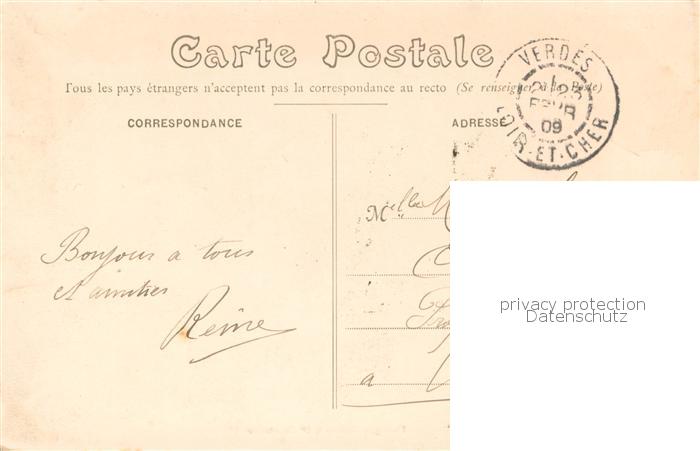 Carte Postale
Tous les pays étrangers n'acceptent pas la correspondance au recto (Se renseigner à la Poste)
CORRESPONDANCE
ADRESSE
VERDES
FEVR
09
LOIR-ET-CHER
Melle
Bonjour à tous
et amitiés
Reine
à
privacy protection
Datenschutz